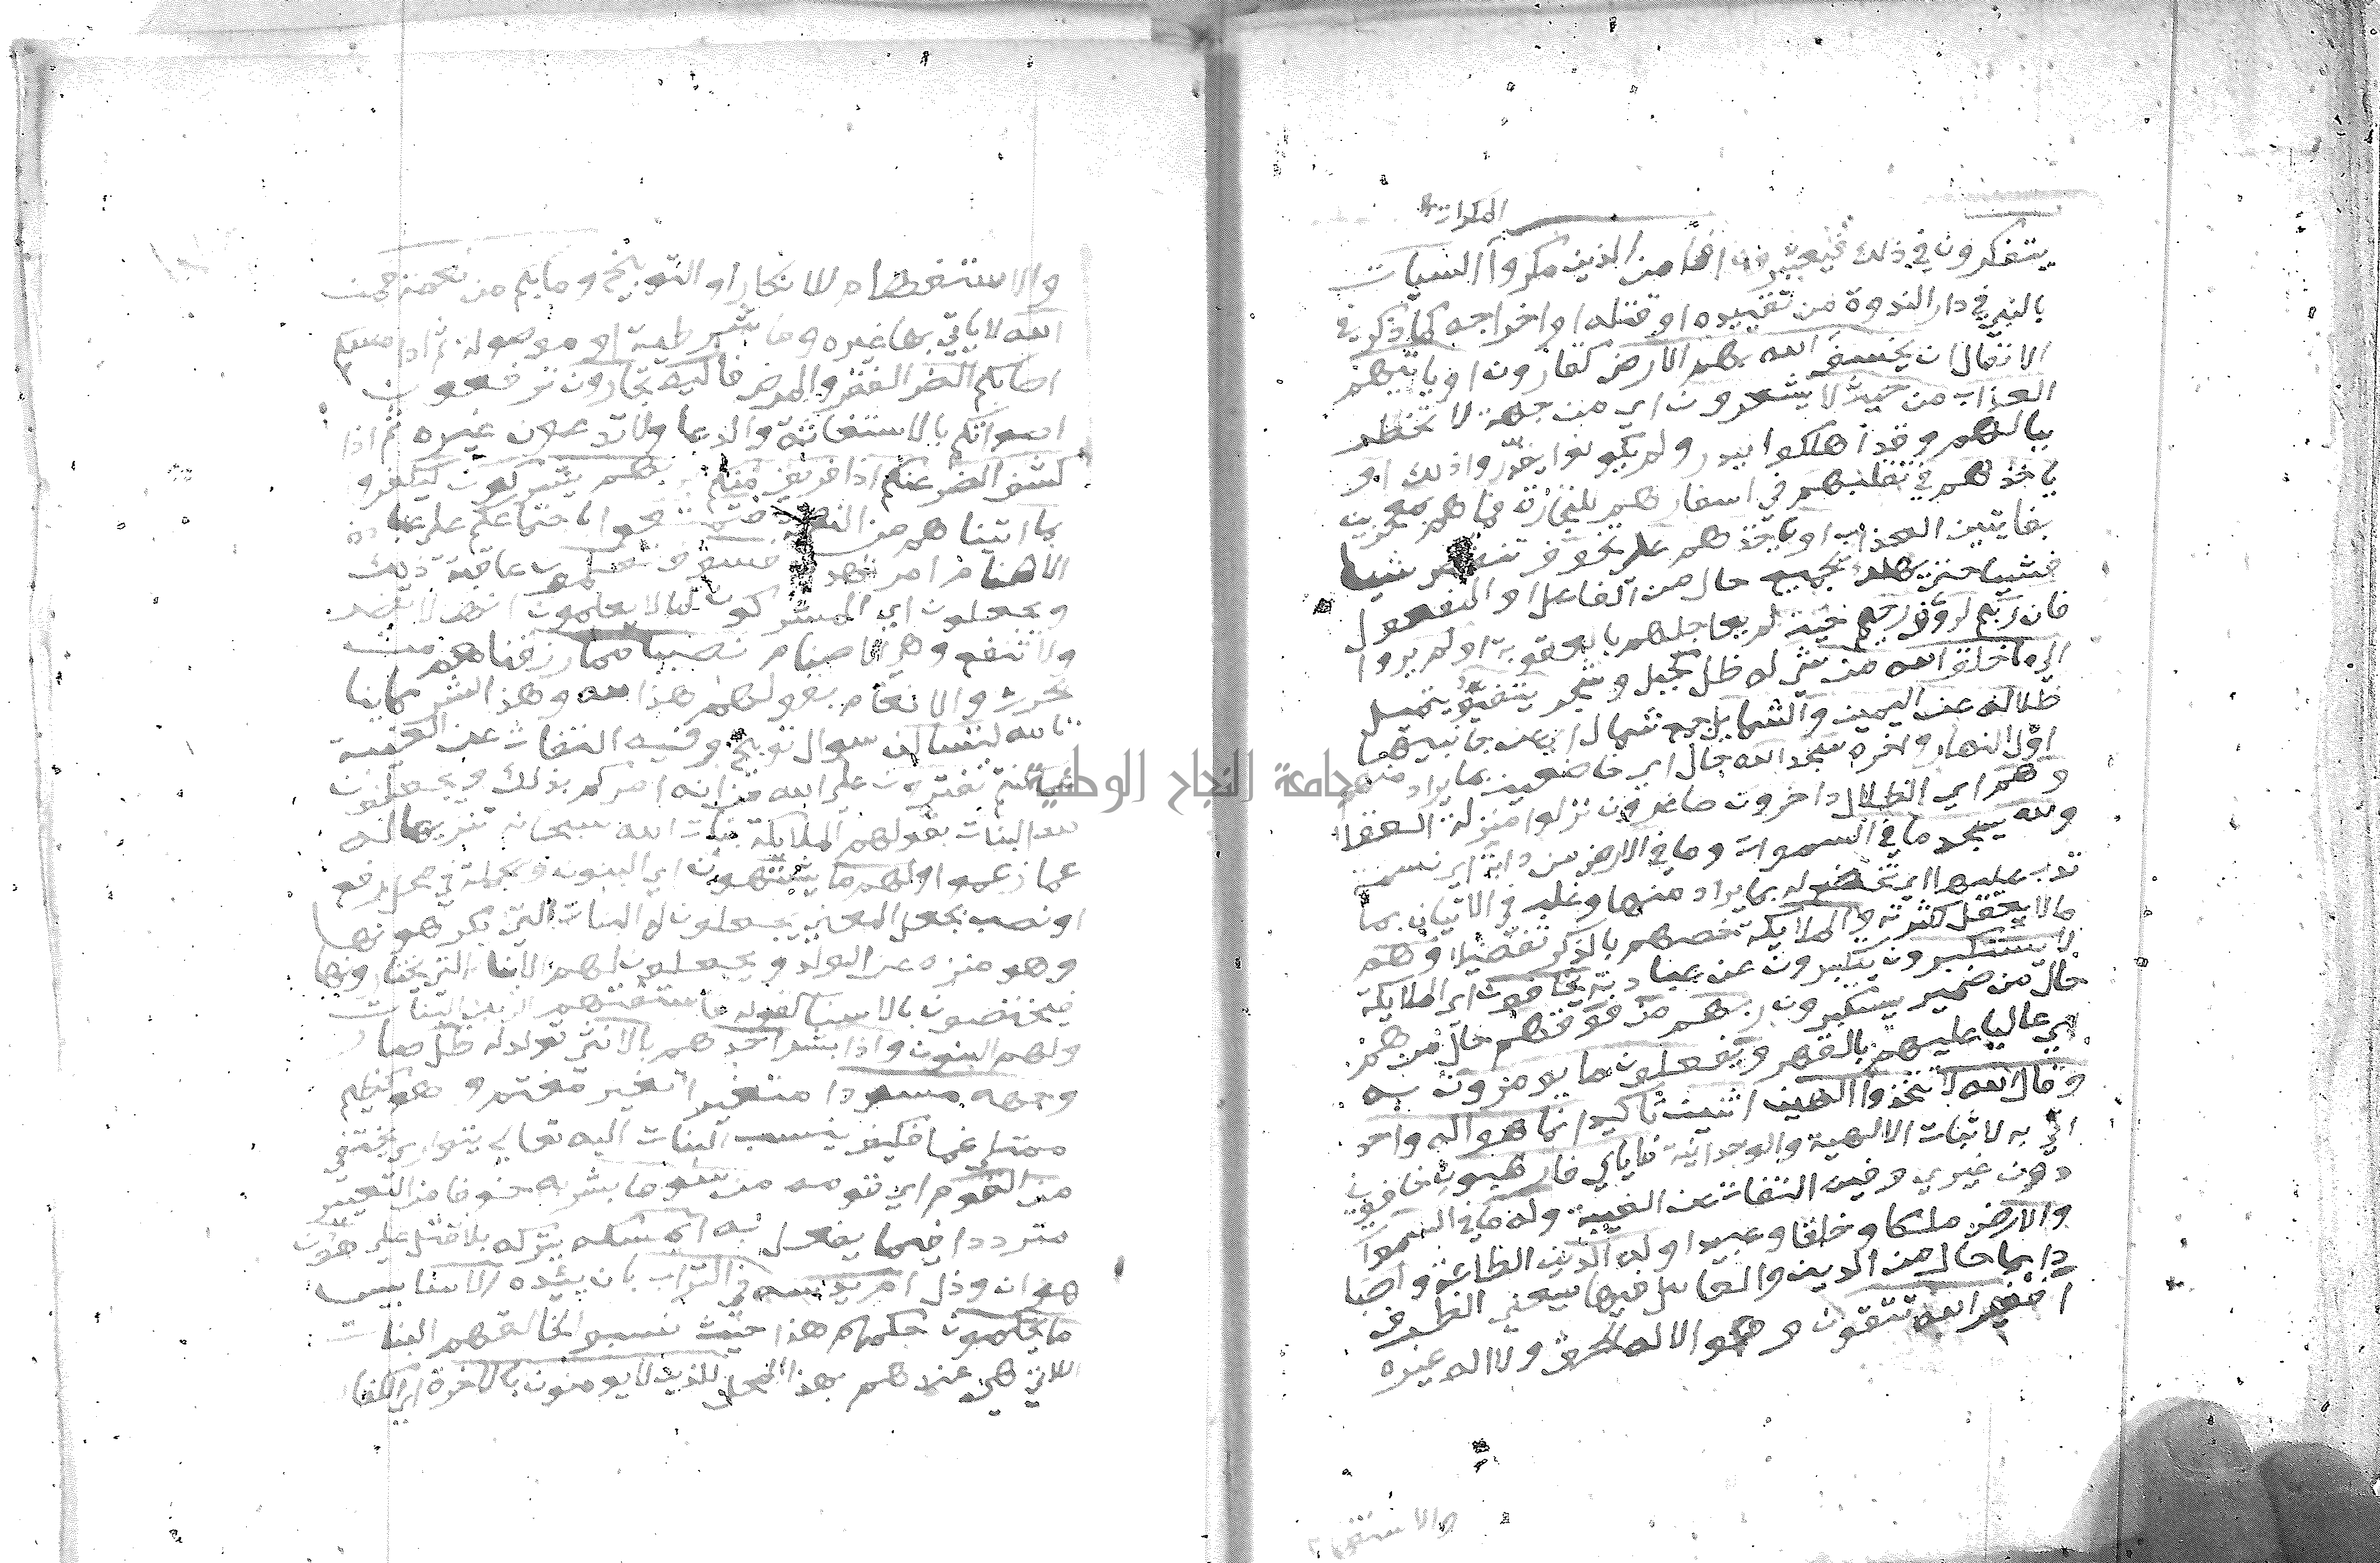 المكرات
يتفكرون في ذلك فيعتبرون افامن الذين مكروا السيات
بالنبي في دار الندوة من تقييده او قتله او اخراجه كما ذكر في
الانفال ان يخسف الله بهم الارض كقارون او ياتيهم
العذاب من حيث لا يشعرون اي من جهة لا تخطر
ببالهم وقد اهلكوا ببدر ولم يكونوا يقدروا ذلك او
ياخذهم في تقلبهم في اسفارهم للتجارة فما هم بمعجزين
بفايتين العذاب او ياخذهم على تخوف تنقص شيا
فشيا حتى يهلك الجميع حال من الفاعل او المفعول
فان ربكم لروف رحيم حيث لم يعاجلهم بالعقوبة اولم يروا
الى ما خلق الله من شي له ظل كجبل وشجر يتفيؤ يتميل
ظلاله عن اليمين والشمايل جمع شمال اي عن جانبيهما
اول النهار واخره سجدا لله حال اي خاضعين بما يراد منهم
وهم اي الظلال داخرون صاغرون نزلوا منزلة العقلا
ولله يسجد ما في السموات وما في الارض من دابة اي نسمة
تدب عليها اي تخضع له بما يراد منها وغلب في الاتيان بما
ما لا يعقل لكثرته والملايكة خصهم بالذكر تفضيلا وهم
لا يستكبرون يتكبرون عن عبادته يخافون اي الملايكة
حال من ضمير يستكبرون ربهم من فوقهم حال من هم
اي عاليا عليهم بالقهر ويفعلون ما يومرون به
وقال الله لا تتخذوا الهين اثنين تاكيد انما هو اله واحد
اتي به لاثبات الالهية والوحدانية فاياي فارهبون خافون
دون غيري وفيه التفات عن الغيبة وله ما في السموات
والارض ملكا وخلقا وعبيدا وله الدين الطاعة واصبا
دايما حال من الدين والعامل فيها معني الظرف
افغير الله تتقون وهو الاله الحق ولا اله غيره
والاستفهام
والاستفهام للانكار او التوبيخ وما بكم من نعمة فمن
الله لا ياتي بها غيره وما شرطية او موصولة ثم اذا مسكم
اصابكم الضر الفقر والمرض فاليه تجارون ترفعون
اصواتكم بالاستغاثة والدعا ولا تدعون غيره ثم اذا
كشف الضر عنكم اذا فريق منكم بربهم يشركون ليكفروا
بما اتيناهم من النعمة فتمتعوا باجتماعكم على عبادة
الاصنام امر تهديد فسوف تعلمون عاقبة ذلك
ويجعلون اي المشركون لما لا يعلمون انها لا تضر
ولا تنفع وهي الاصنام نصيبا مما رزقناهم من
الحرث والانعام بقولهم هذا لله وهذا لشركاينا
تالله لتسالن سوال توبيخ وفيه التفات عن الغيبة
عما كنتم تفترون على الله من انه امركم بذلك ويجعلون
لله البنات بقولهم الملايكة بنات الله سبحانه تنزيها له
عما زعموا ولهم ما يشتهون اي البنون والجملة في محل رفع
او نصب بجعل المعني يجعلون له البنات التي يكرهونها
وهو منزه عن الولد ويجعلون لهم الابنا الذين يختارونها
فيختصون بالاسنا كقوله فاستفتهم الربك البنات
ولهم البنون واذا بشر احدهم بالانثى تولد له ظل صار
وجهه مسودا متغيرا تغير مغتم وهو كظيم
ممتلي غما فكيف ينسب البنات اليه تعالى يتوارى يختفي
من القوم اي قومه من سوء ما بشر به خوفا من التعيير
مترددا فيما يفعل به ايمسكه يتركه بلا قتل على هون
هوان وذل ام يدسه في التراب بان يئده الا سا بيس
ما يحكمون حكمهم هذا حيث نسبوا لخالقهم البنات
اللاتي هي عندهم بهذا المحل للذين لا يومنون بالاخرة اي الكفار
جامعة النجاح الوطنية